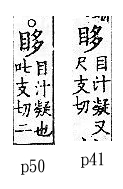 眵
目汁凝又
尺支切
○
眵
目汁凝也
叱支切二
p50
p41